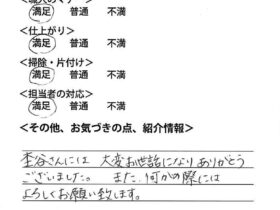 満足 普通 不満
<仕上がり>
満足 普通 不満
<掃除・片付け>
満足 普通 不満
<担当者の対応>
満足 普通 不満
<その他、お気づきの点、紹介情報>
谷さんには 大変お世話になり ありがとう
ございました。 また、何かの際には
よろしくお願い致します。